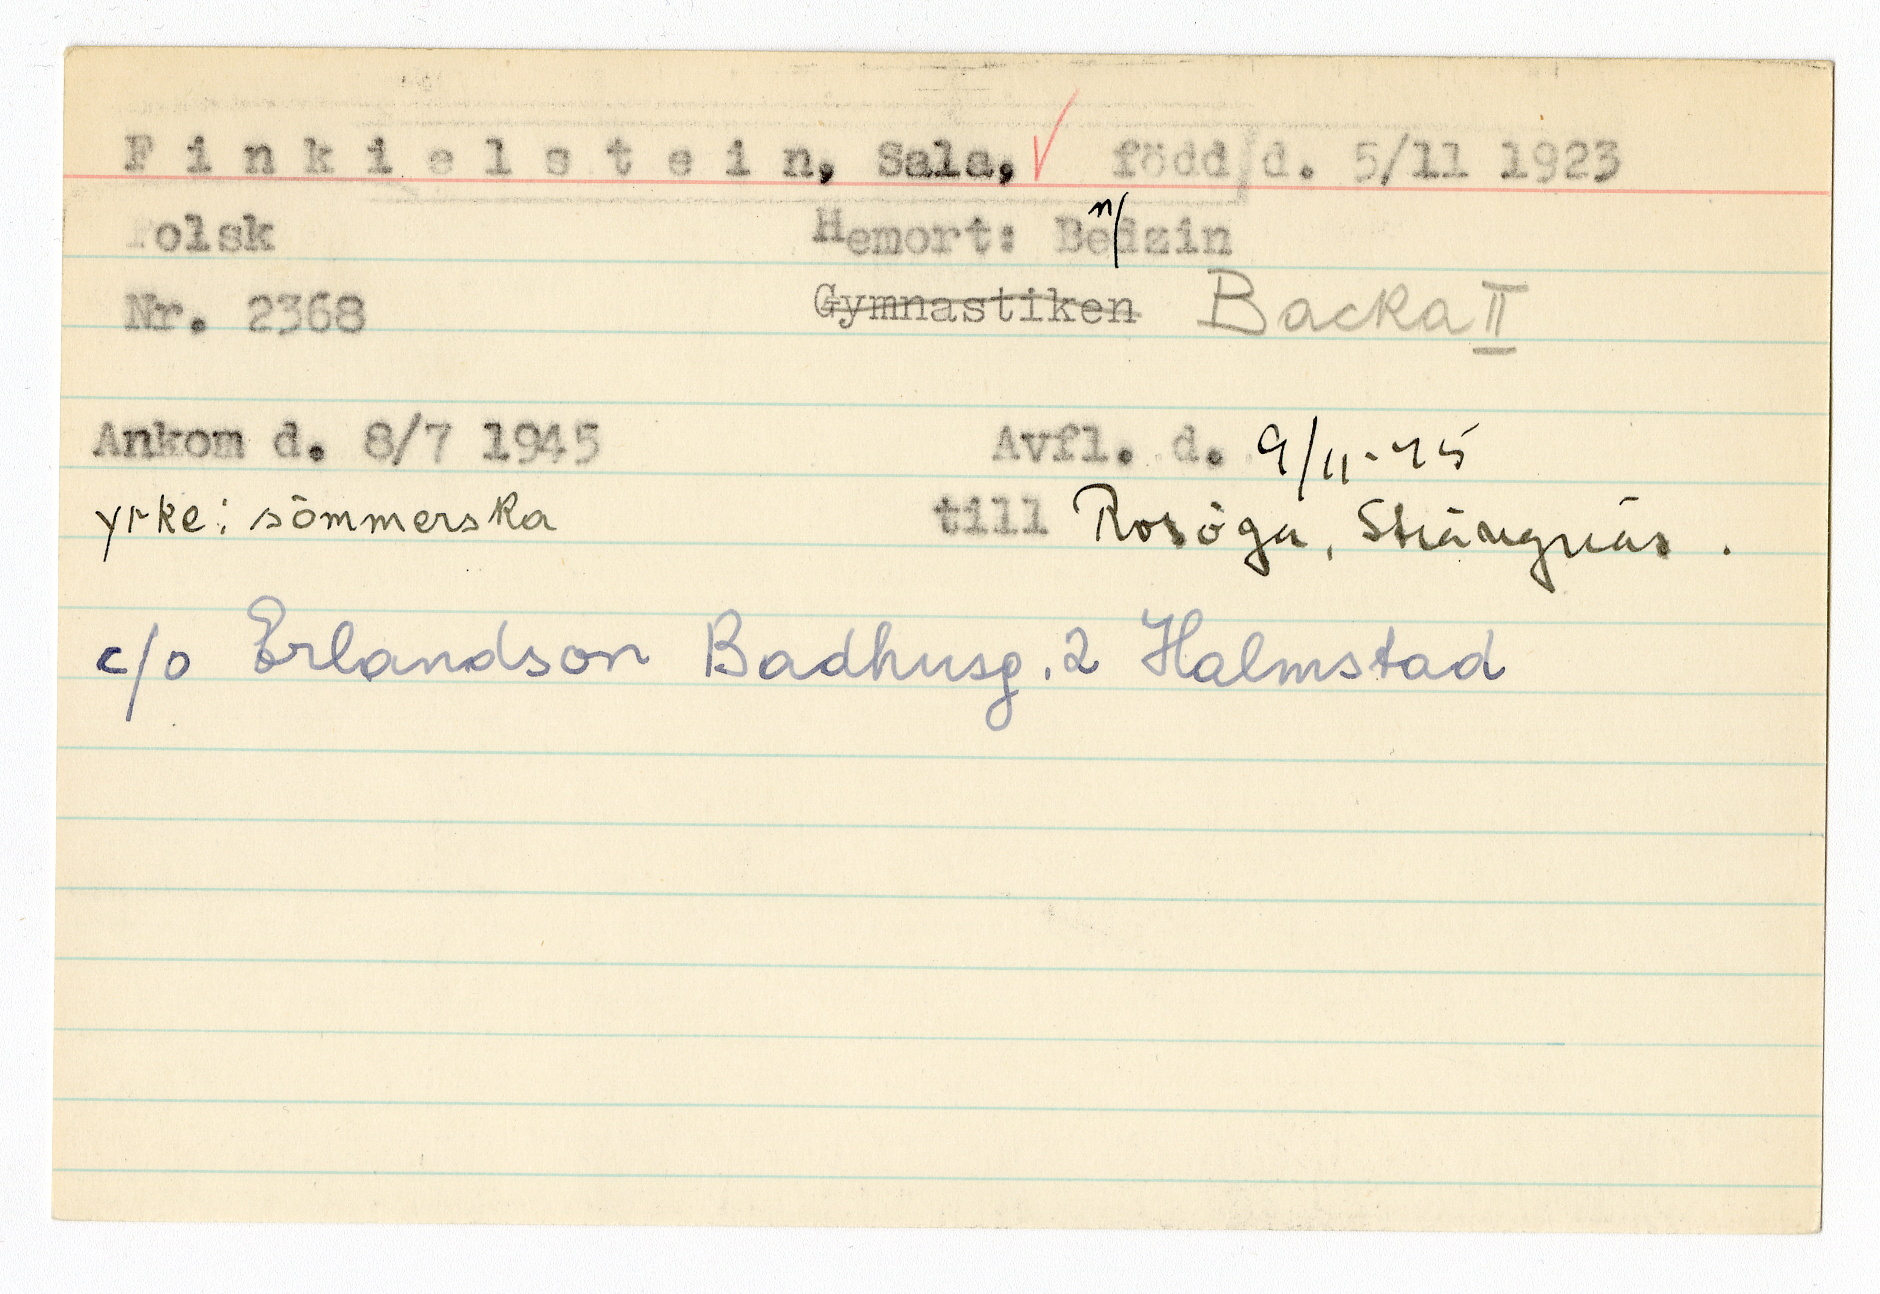 F i n k i e l s t e i n, Sala, ✓ född d. 5/11 1923
Polsk Hemort: Bendzin
Nr. 2368 Gymnastiken Backa II
Ankom d. 8/7 1945 Avfl. d. 9/11-45
yrke: sömmerska till Rosöga, Strängnäs.
c/o Erlandson Badhusg. 2 Halmstad